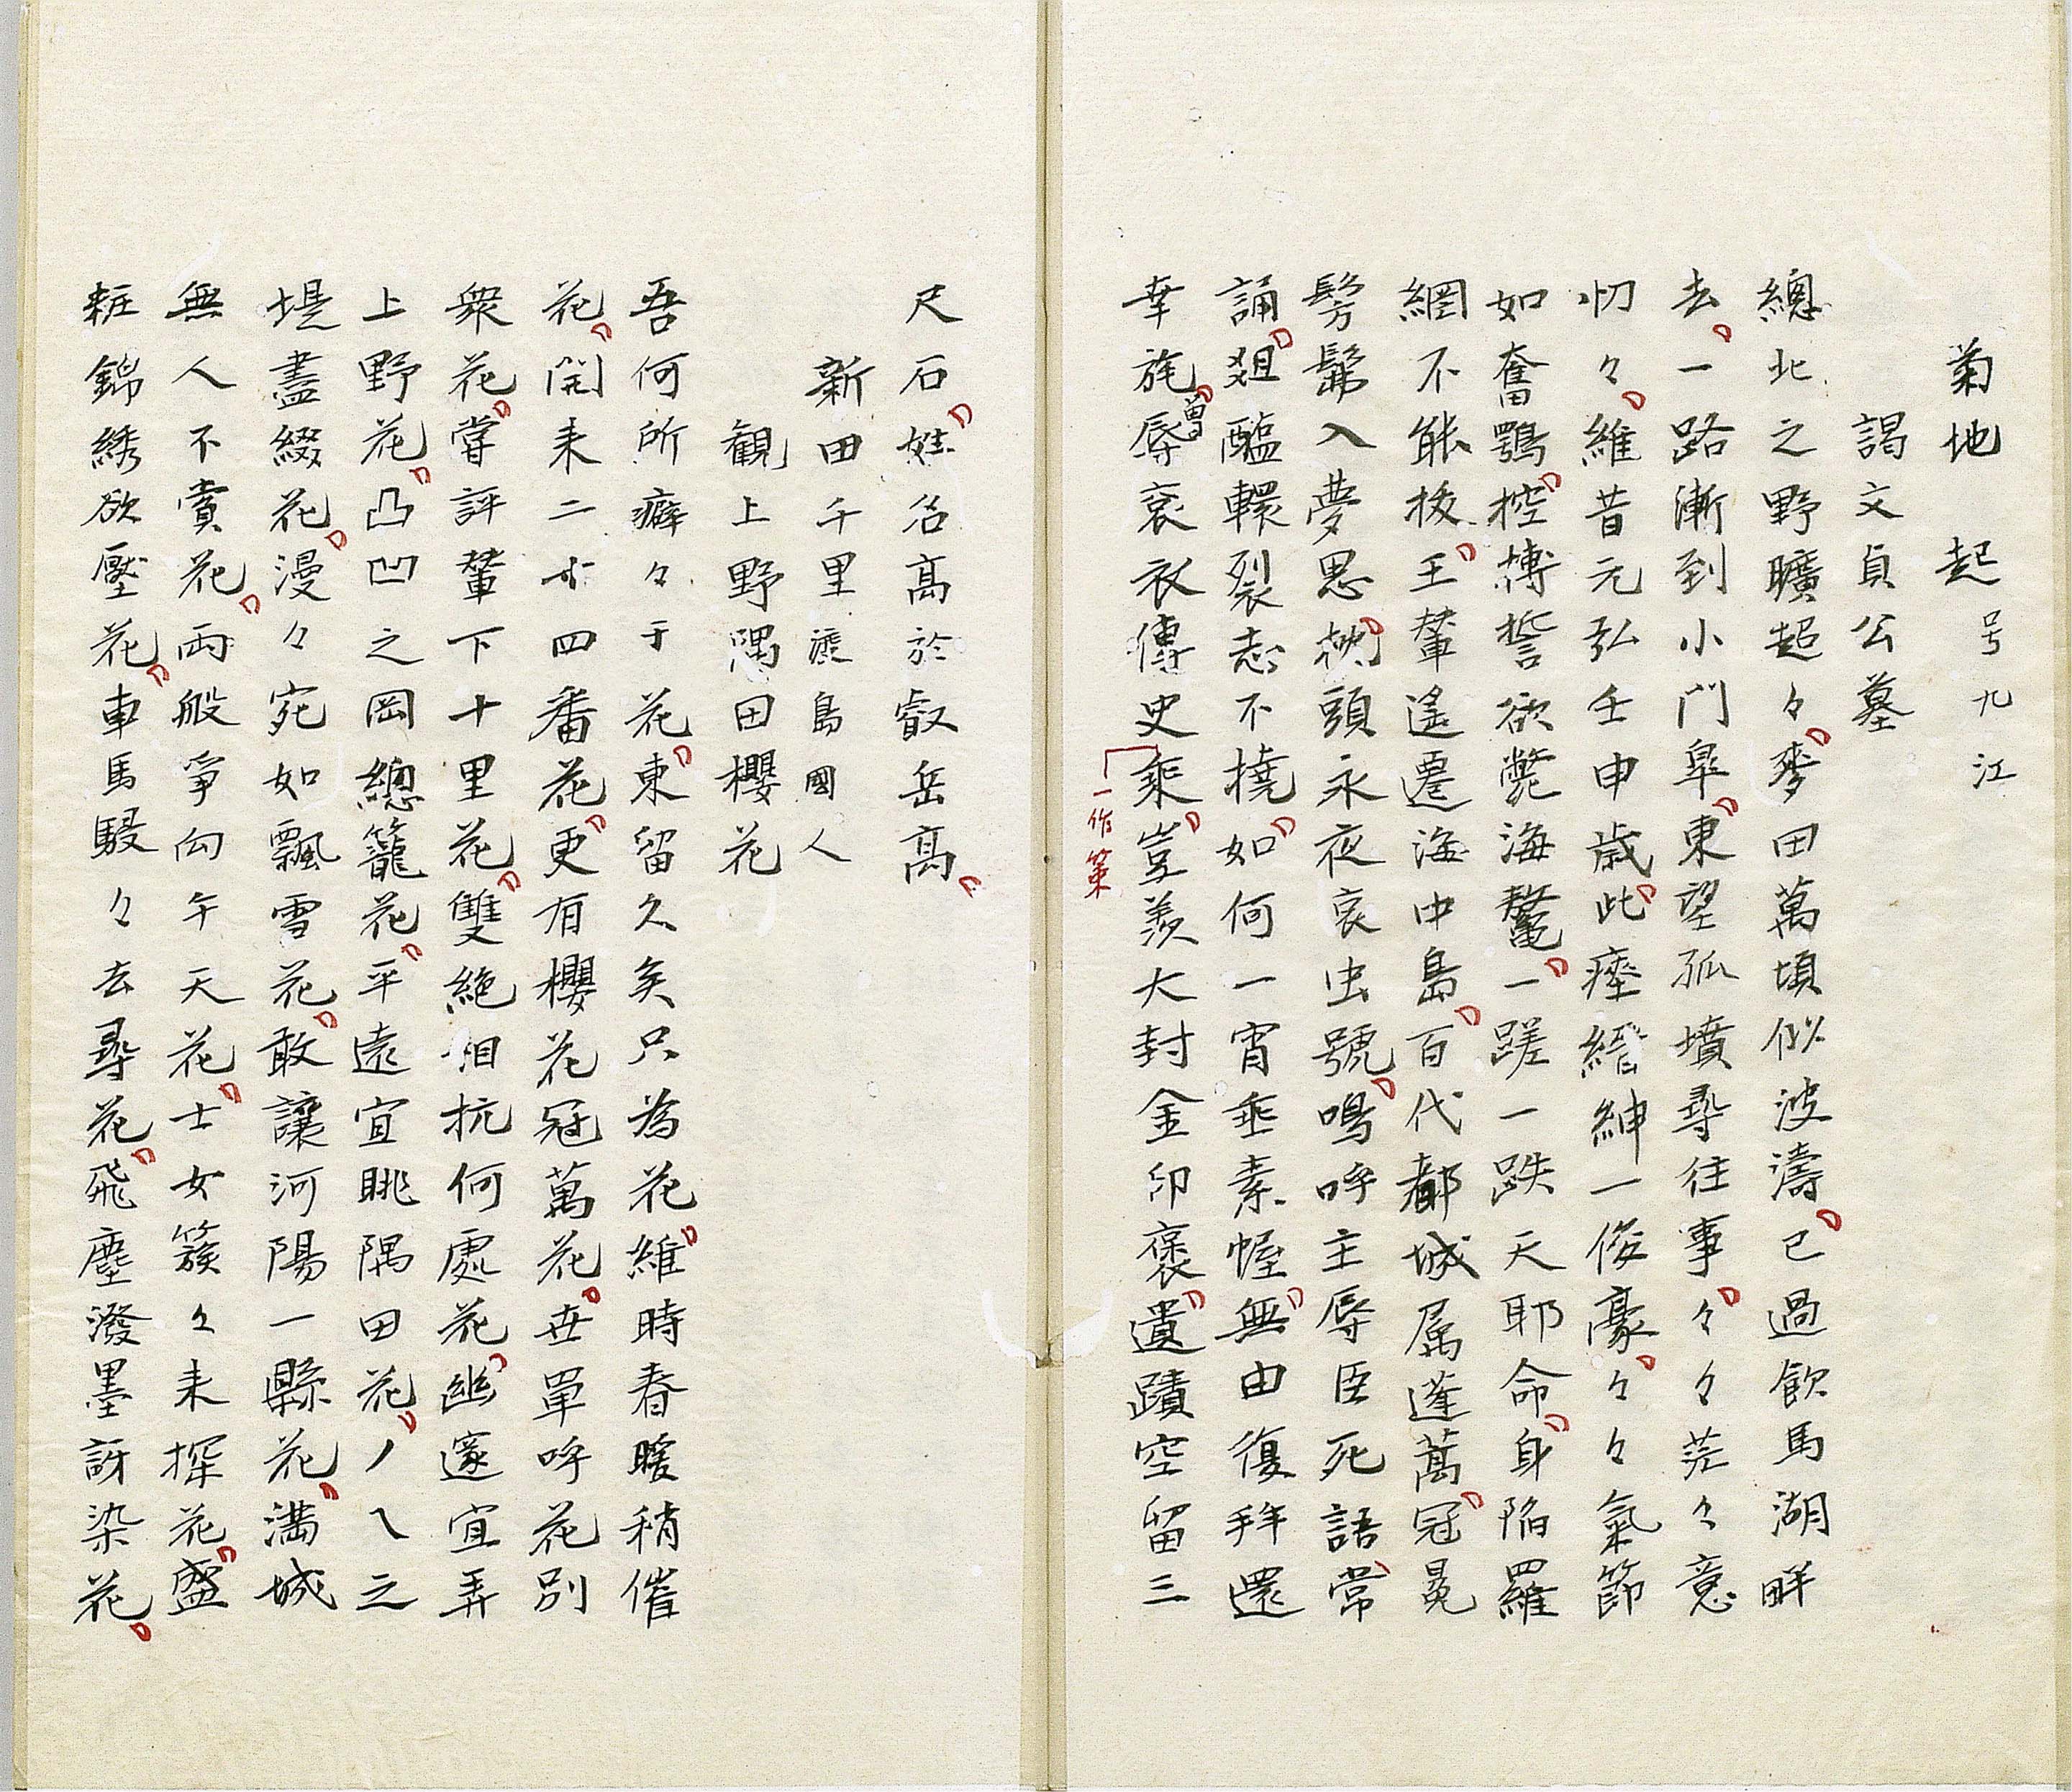 菊地　起号九江
謁文貞公墓
總北之野曠超々麥田萬頃似波濤已過飲馬湖畔
去一路漸到小門皐東望孤墳尋往事々々茫々意
忉々維昔元弘壬申歳此瘞縉紳一俊豪々々氣節
如奮鶚搏誓欲斃海鼇一蹉一跌天耶命身陥羅
網不能抜王輦遙遷海中島百代都城属蓬蒿冠冕
髣髴入夢思頭永夜哀虫號嗚呼主辱臣死語常
誦爼醢轘裂志不撓如何一宵垂素幄無由復拜還
幸旄曽辱袞衣傳史乘豈羨大封金印褒遺蹟空留三
一作策
尺石姓名髙於叡岳髙
新田千里 島國人
觀上野隅田櫻花
吾何所癖々于花東留久矣只為花維時春暖稍催
花開来二十四番花更有櫻花冠萬花世單呼花別
衆花嘗評輦下十里花雙絶相抗何處花幽邃宜弄
上野花凸凹之岡總籠花平遠宜眺隅田花ノ乀之
堤盡綴花漫々宛如飄雪花敢讓河陽一縣花満城
無人不賞花両般爭向午天花士女簇々来探花盛
粧錦綉欲壓花車馬駸々去尋花飛塵潑墨訝染花